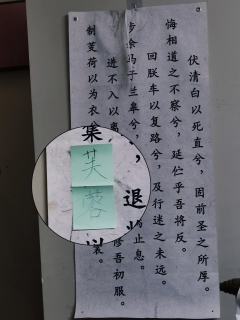 伏清白以死直兮，固前圣之所厚。
悔相道之不察兮，延伫乎吾将反。
回朕车以复路兮，及行迷之未远。
步余马于兰皋兮，焉止息。
进不入以离，退修吾初服。
制芰荷以为衣集芙蓉以裳。